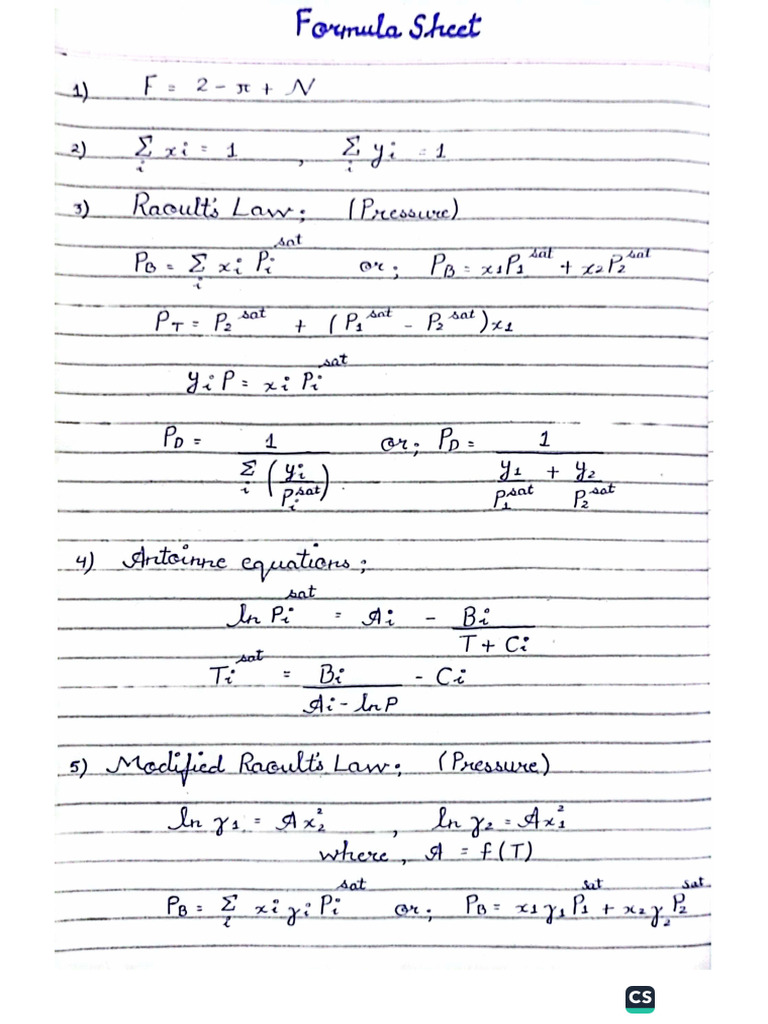 Formula Sheet
1) F = 2 - π + N
2) Σi xi = 1 , Σi yi = 1
3) Raoult's Law; (Pressure)
PB = Σi xi Pi^sat or; PB = x1P1^sat + x2P2^sat
PT = P2^sat + (P1^sat - P2^sat)x1
yiP = xi Pi^sat
PD = 1 / Σi (yi / Pi^sat) or; PD = 1 / (y1 / P1^sat + y2 / P2^sat)
4) Antoinne equations;
ln Pi^sat = Ai - Bi / (T + Ci)
Ti^sat = Bi / (Ai - lnP) - Ci
5) Modified Raoult's Law; (Pressure)
ln γ1 = Ax2^2 , ln γ2 = Ax1^2
where, A = f(T)
PB = Σi xi γi Pi^sat or; PB = x1 γ1 P1^sat + x2 γ2 P2^sat
CS